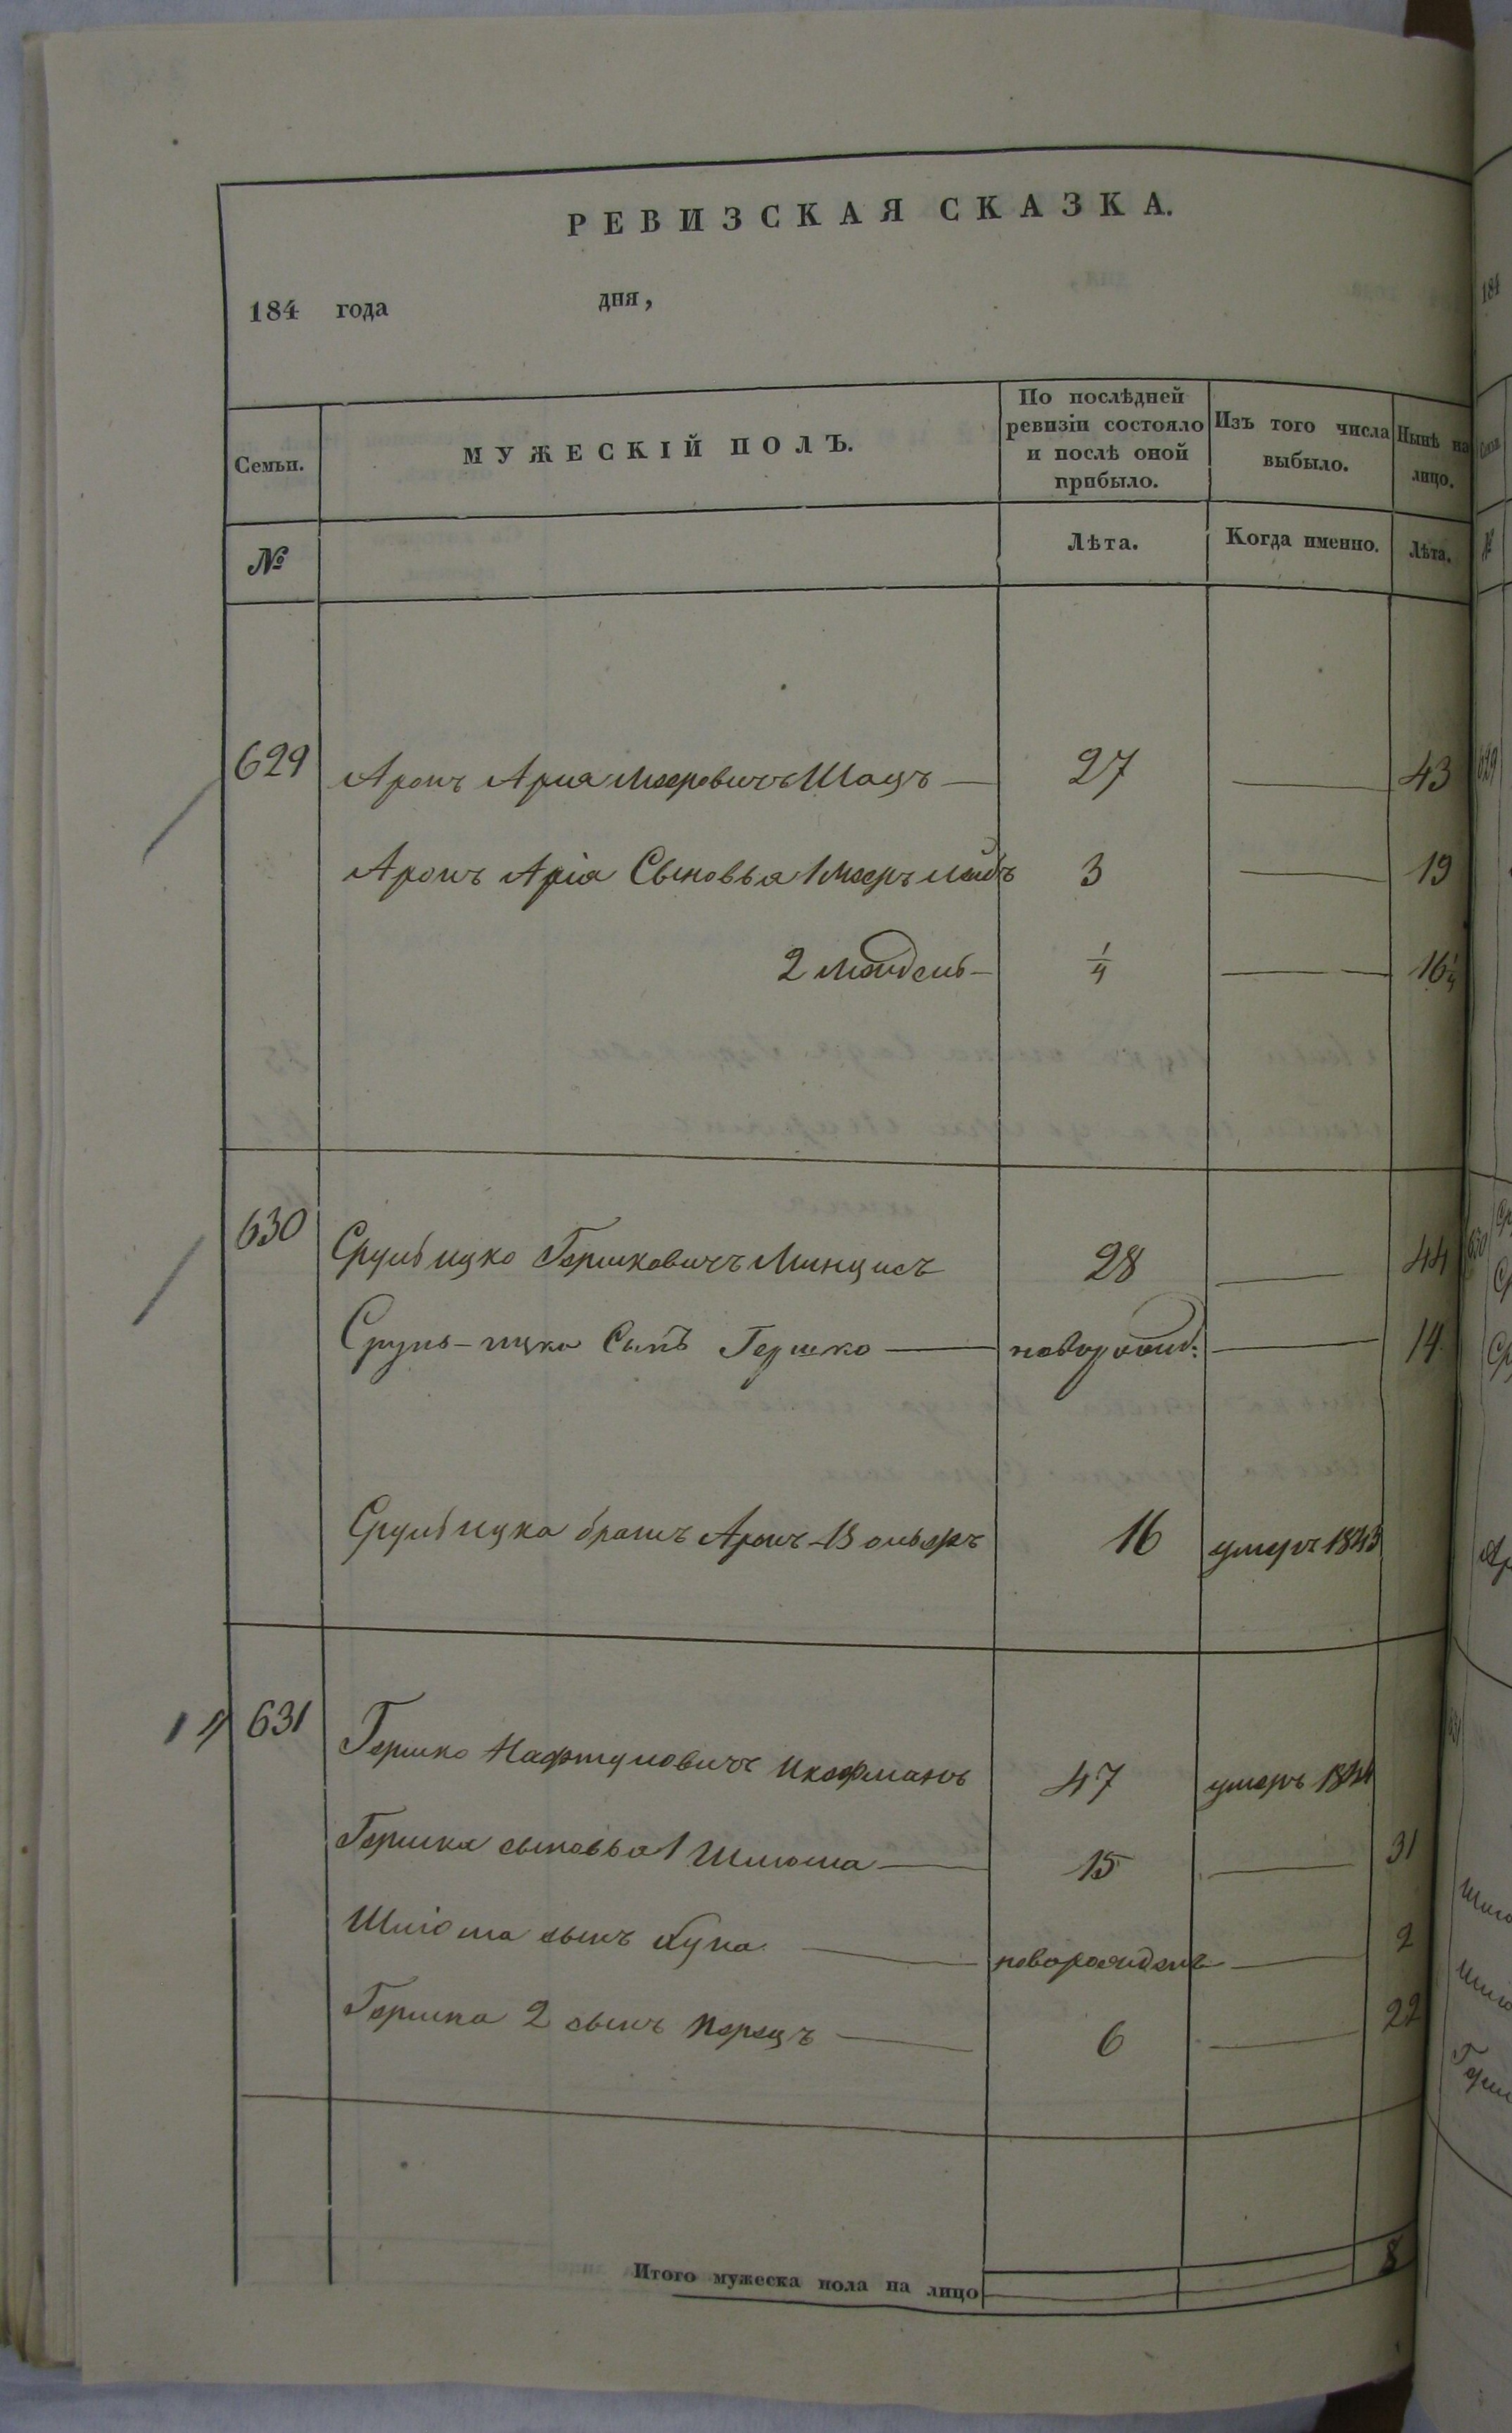 РЕВИЗСКАЯ СКАЗКА.
184 года дня,
Семьи. МУЖЕСКІЙ ПОЛЪ. По послѣдней ревизіи состояло и послѣ оной прибыло. Изъ того числа выбыло. Нынѣ на лицо.
№ Лѣта. Когда именно. Лѣта.
629 Аронъ Ариа Мееровичъ Шацъ — 27 — 43
Аронъ Аріа Сыновья 1 Мееръ Лейбъ 3 — 19
2 Мендель — 1/4 — 16 1/4
630 Сруль Ицко Гершковичъ Минцисъ 28 — 44
Сруль-Ицка Сынъ Гершко — новорожд: — 14
Сруль Ицка братъ Аронъ 16 умеръ 1843
631 Гершко Нафтуловичъ 47 умеръ 1844
Гершка сыновья 1 Шліома — 15 — 31
Шліома сынъ — новорожденъ — 2
Гершка 2 сынъ Перецъ — 6 — 22
Итого мужеска пола на лицо 8